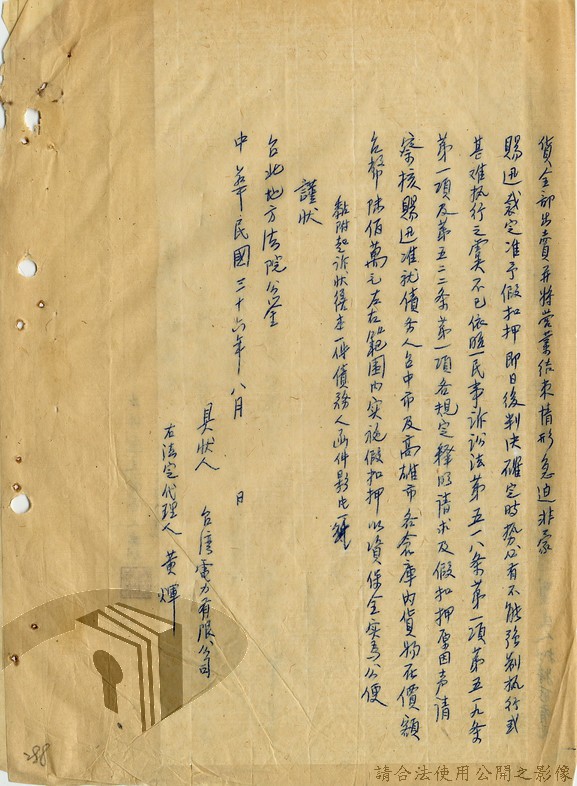 貨全部出賣并將营業结束情形急迫非蒙
賜迅裁定准予假扣押即日後判决確定时势必有不能強制执行或
甚难执行之虞不已依照民事诉讼法第五一八条第一項第五一九条
第一項及第五二二条第一項各規定釋明请求及假扣押原因声请
察核賜迅准就债务人台中市及高雄市各倉庫内貨物在價額
台幣陸佰萬元左右範围内实施假扣押以資保全实为公便
黏附起诉状缮本一件债務人函件影本一件
謹状
台北地方法院公鉴
中華民國三十六年八月 日
具状人 台湾電力有限公司
右法定代理人 黄煇
288
請合法使用公開之影像